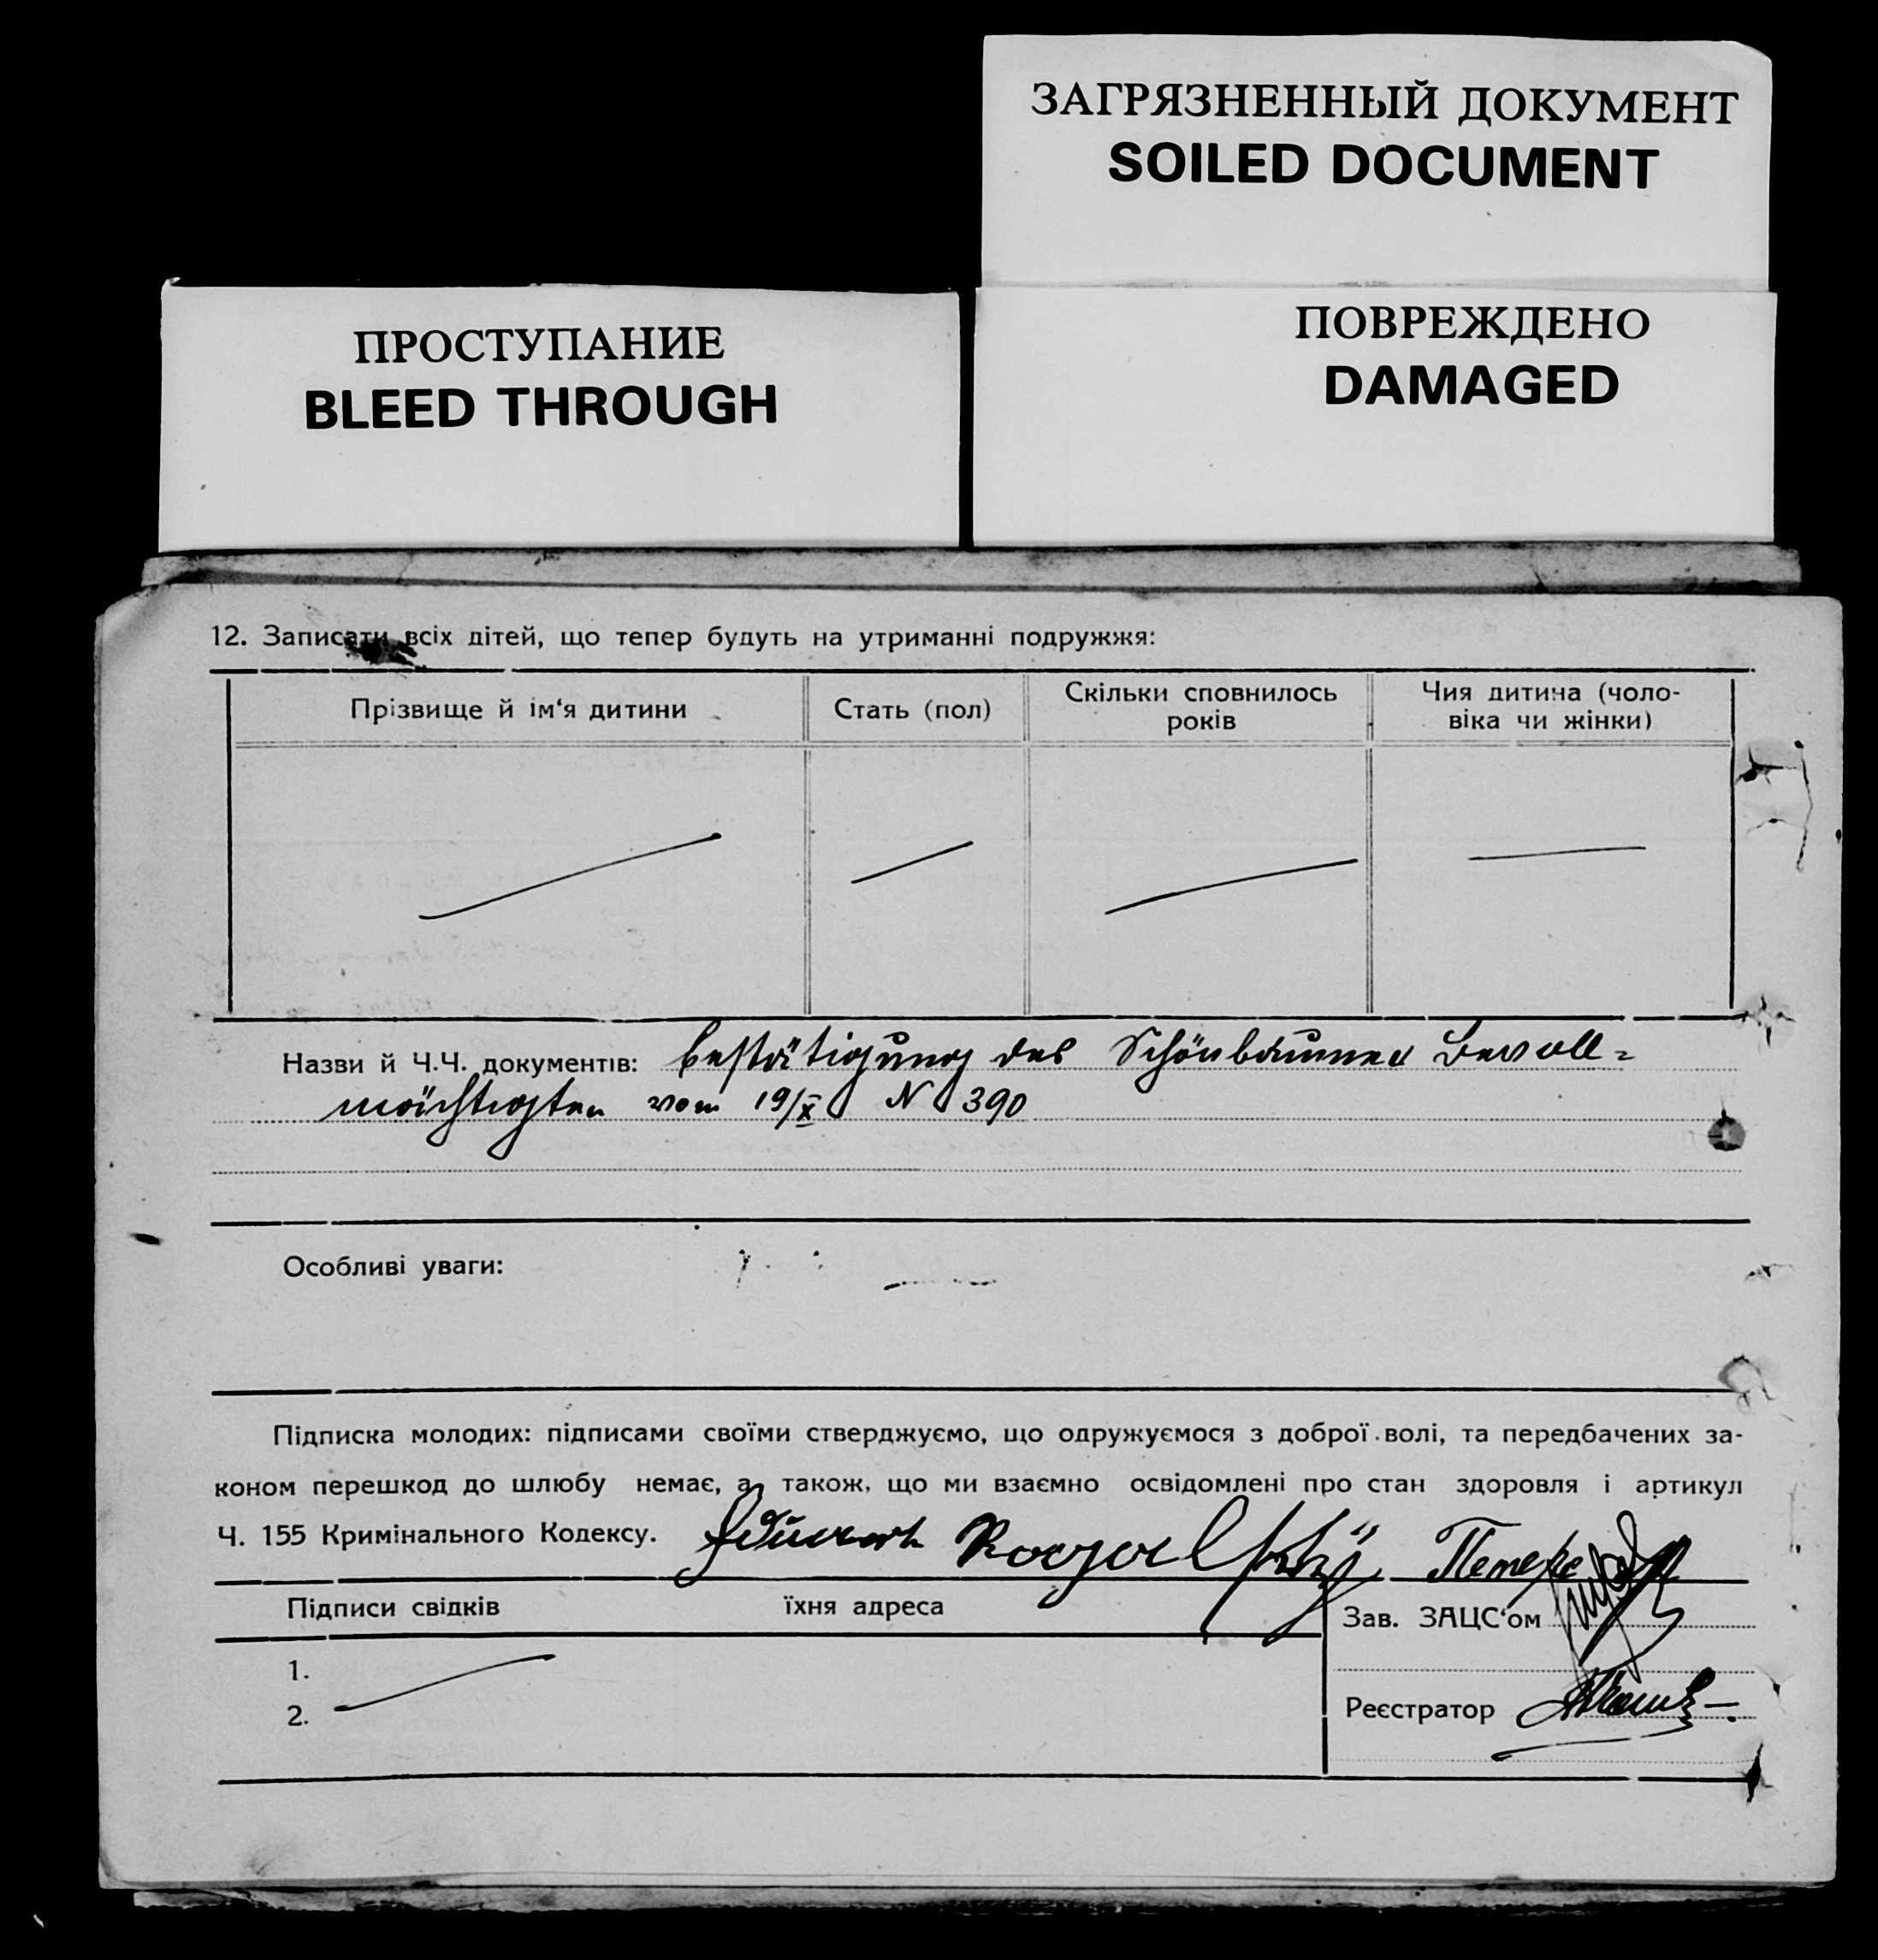 ЗАГРЯЗНЕННЫЙ ДОКУМЕНТ
SOILED DOCUMENT
ПРОСТУПАНИЕ
BLEED THROUGH
ПОВРЕЖДЕНО
DAMAGED
12. Записати всіх дітей, що тепер будуть на утриманні подружжя:
Прізвище й ім'я дитини
Стать (пол)
Скільки сповнилось
років
Чия дитина (чоло-
віка чи жінки)
Назви й Ч.Ч. документів: Bestätigung des Schönbaumer Bevoll=
mächtigten vom 19/X N 390
Особливі уваги:
Підписка молодих: підписами своїми стверджуємо, що одружуємося з доброї волі, та передбачених за-
коном перешкод до шлюбу немає, а також, що ми взаємно освідомлені про стан здоровля і артикул
Ч. 155 Кримінального Кодексу. Eduard Rogalsky
Підписи свідків їхня адреса
Зав. ЗАЦС'ом
1.
2.
Реєстратор